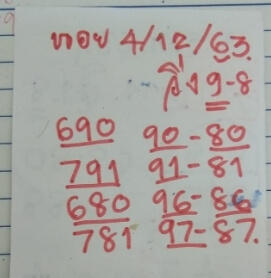 หอย 4/12/63.
วิ่ง 9-8
690 90-80
791 91-81
680 96-86
781 97-87.